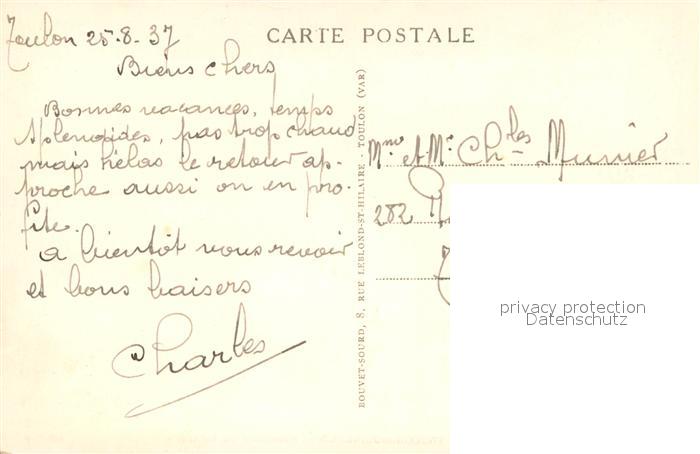 Toulon 25-8-37
CARTE POSTALE
Biens chers
Bonnes vacances, temps
splendides, pas trop chaud
mais hélas le retour ap-
proche aussi on en pro-
fite.
A bientôt vous revoir
et bons baisers
Charles
BOUVET-SOURD, 8, RUE LEBLOND-ST-HILAIRE - TOULON (VAR)
Mme et Mr Chles Munier
282
privacy protection
Datenschutz